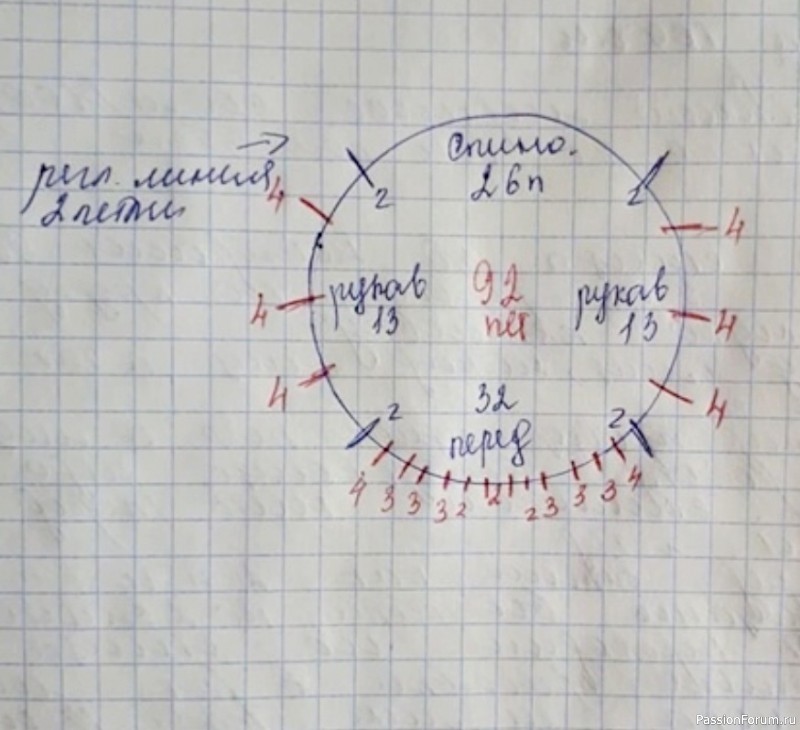 спинка.
26п
регл. линия
2 петли
2
2
4
4
4
рукав
13
4
92
пет
рукав
13
4
4
4
2
32
перед
2
4 3 3 3 2 2 2 3 3 3 4
PassionForum.ru